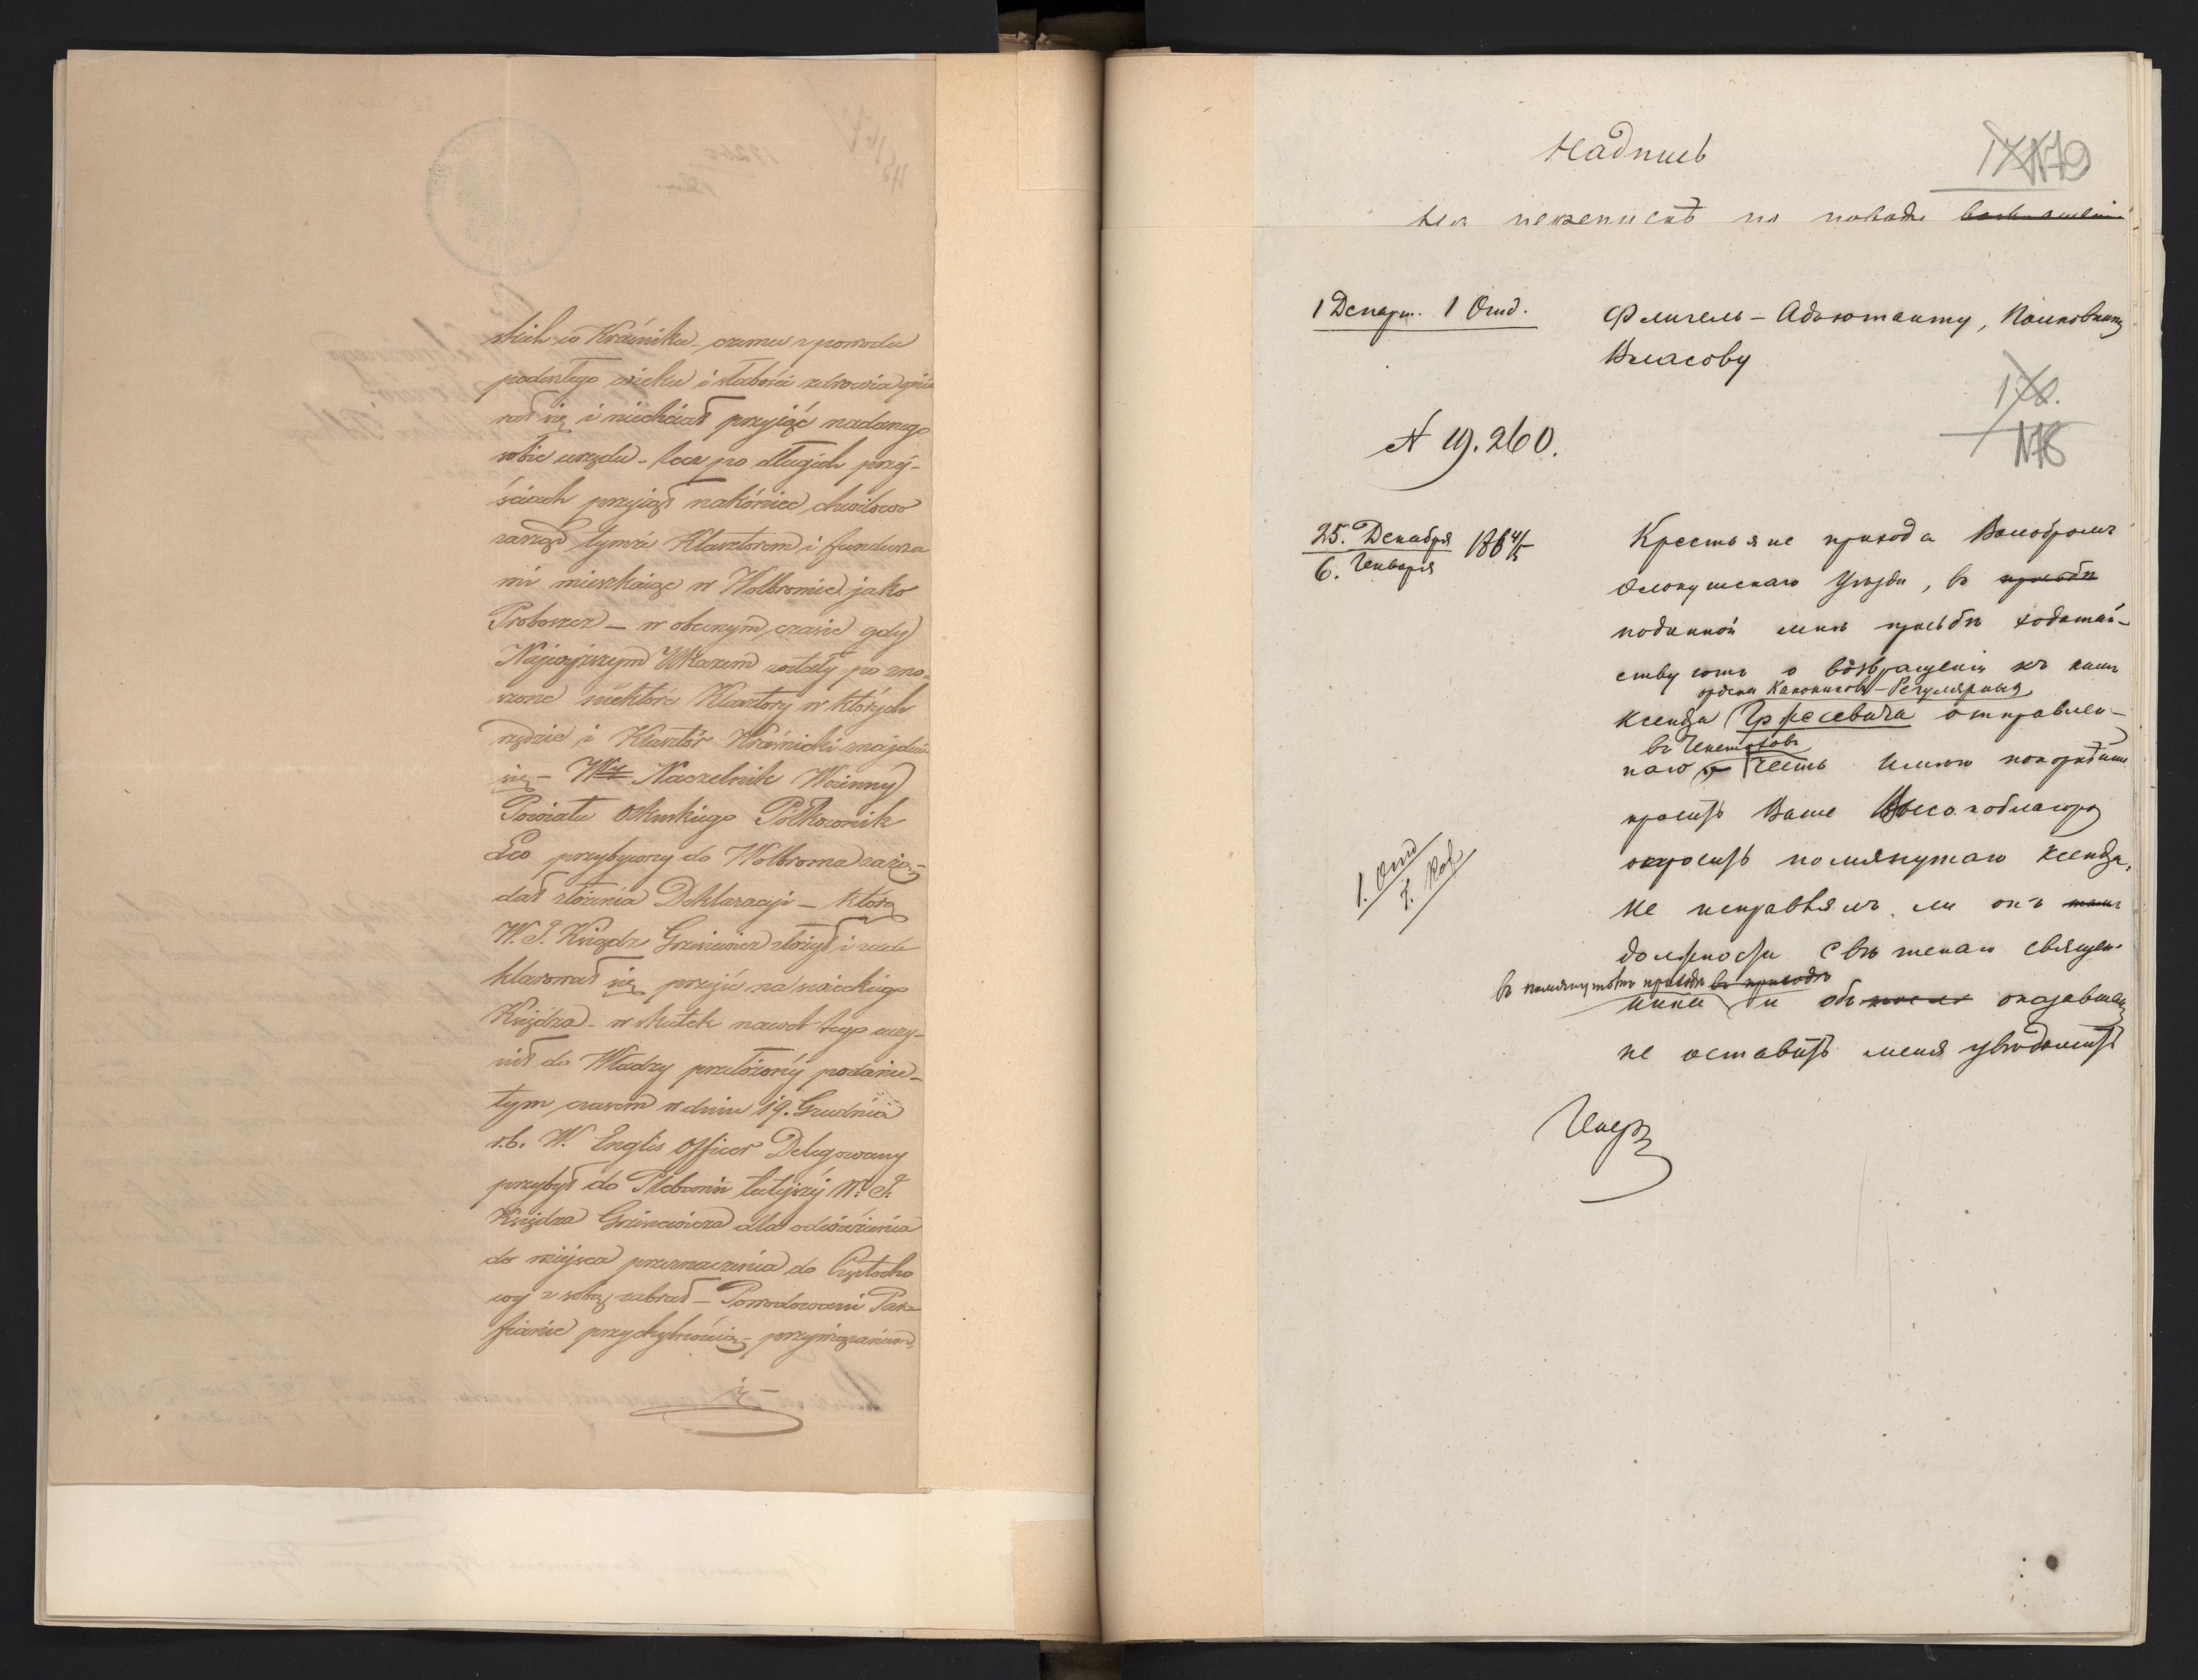 skich w Kraśniku – czemu z powodu
podeszłego wieku i słabości zdrowia opie
rał się i niechciał przyjąć nadanego
sobie urzędu – lecz po długich przej-
ściach przyjął nakóniec chwilowo
zarząd tymże Klasztorem i fundusza
mi mieszkaiąc w Wolbromie jako
Proboszcz – w obecnym czasie gdy
Najwyższym Ukazem zostały po zno-
szone niektóre Klasztory w których
rzędzie i Klasztór Kraśnicki znajduie
się – Wny Naczelnik Woienny
Powiatu Olkuskiego Półkownik
Leo przybywszy do Wolbroma zażą-
dał złożenia Deklaracyi – którą
W. J. Książdz Gozieiewicz złożył i zade
klarował się przejść na swieckiego
Księdza – w skutek nawet tego uczy-
nił do Władzy przełożonéj podanie –
tym czasem w dniu 19. Grudnia
r.b. W. Englis Officer Delegowany
przybył do Plebanii tutejszéj W. J.
Księdza Gozieiewicza dla odwiezienia
do miejsca przeznaczenia do Częstocho
wy z sobą zabrał – Powodowani Para
fianie przychylnością – przywiązaniem
Надпись
IX N79
на перепискѣ по поводу
1 Департ. 1 Отд.
Флигель-Адъютанту, Полковнику
Власову
178.
N78
N 19.260.
25. Декабря 1864/5
6. Января
Крестьяне прихода Вольбромъ
Олькушскаго Уѣзда, въ просьбѣ
поданной мнѣ просьбѣ ходатай-
ствуютъ о возвращеніи къ нимъ
ордена Каноников-Регулярныхъ
ксендза отправлен-
въ Ченстоховъ
наго честь имѣю покорнѣйше
просить Ваше Высокоблагор
опросить помянутаго ксендза,
1. Отд
не исправлялъ ли онъ тамъ
должности свѣтскаго священ-
въ помянутомъ приходѣ въ приходѣ
ника и объ оказавшем
не оставить меня увѣдомить